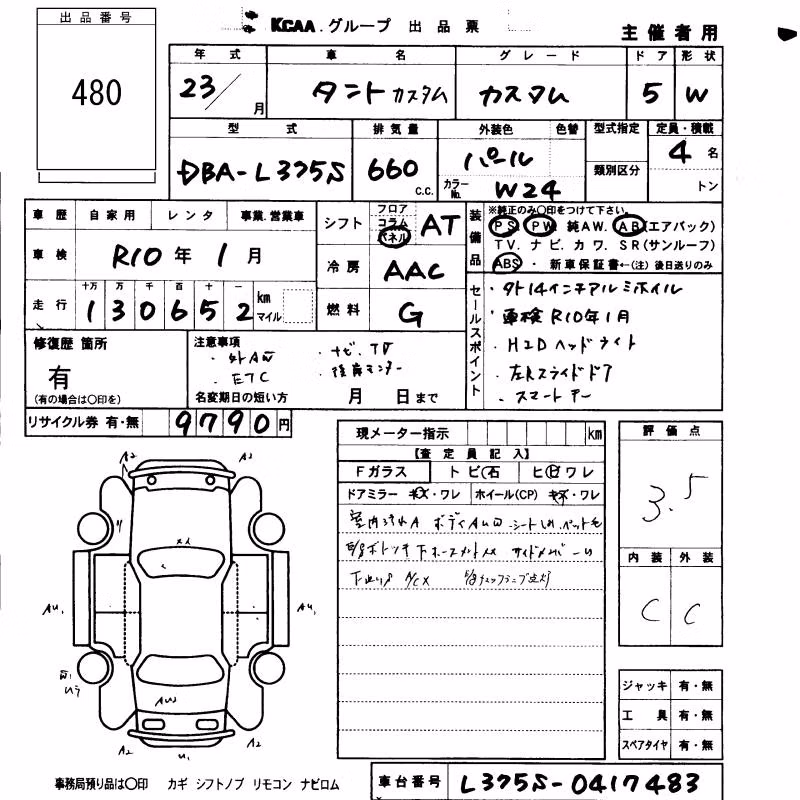 出品番号
480
KCAA.グループ 出品票
主催者用
年式 車名 グレード ドア 形状
23/月 タントカスタム カスタム 5 W
型式 排気量 外装色 色替 型式指定 定員・積載
DBA-L375S 660 c.c. パール 4名
カラーNo. W24 類別区分 トン
車歴 自家用 レンタ 事業.営業車
シフト フロア コラム パネル AT
装備品
※純正のみ○印をつけて下さい。
PS. PW. 純AW. AB(エアバック)
TV. ナビ. カワ. SR(サンルーフ)
ABS・新車保証書←(注)後日送りのみ
車検 R10年1月
冷房 AAC
走行 十万 万 千 百 十 一
130652 km マイル
燃料 G
セールスポイント
・外14インチアルミホイル
・車検R10年1月
・HIDヘッドライト
・左Rスライドドア
・スマートキー
修復歴 箇所
有
(有の場合は○印を)
注意事項
・外AW ・ナビ、TV
・ETC ・後席モニター
名変期日の短い方 月 日まで
リサイクル券 有・無 9790円
現メーター指示 km
【査定員記入】
Fガラス トビ石 ヒビワレ
ドアミラー キズ・ワレ ホイール(CP) キズ・ワレ
室内汚れA ボディAUW シートしみ ペット毛
下廻りサビ A/C×
評価点
3.5
内装 外装
C C
A2 A2
AU1 AU1
AUW
A2 U1 A2
ジャッキ 有・無
工具 有・無
スペアタイヤ 有・無
事務局預り品は○印 カギ シフトノブ リモコン ナビロム
車台番号 L375S-0417483